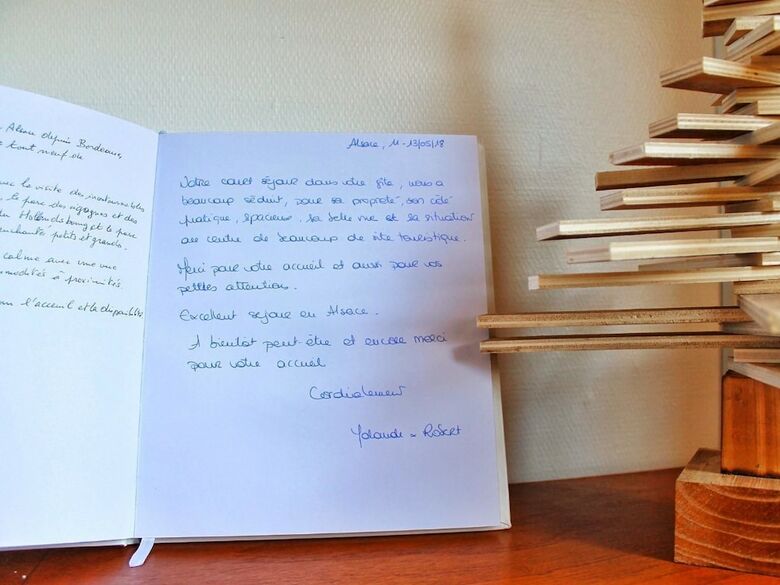 Alsace depuis Bordeaux,
tout neuf de
la visite des incontournables
le parc des cigognes et des
du Hollandsbourg et le parc
enchanté petits et grands.
calme avec une vue
commodités à proximités.
l'acceuil et la disponibilité
Alsace, 11-13/05/18
Notre court séjour dans votre gîte, nous a
beaucoup séduit, pour sa propreté, son côté
pratique, spacieux, sa belle vue et sa situation
au centre de beaucoup de site touristique.
Merci pour votre accueil et aussi pour vos
petites attention.
Excellent séjour en Alsace.
A bientot peut-être et encore merci
pour votre accueil
Cordialement
Yolande - Robert